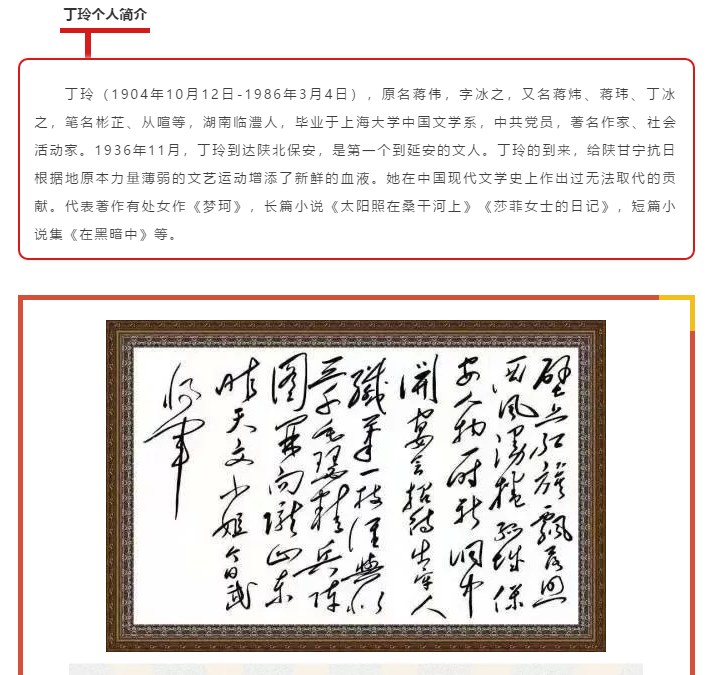 丁玲个人简介
丁玲（1904年10月12日-1986年3月4日），原名蒋伟，字冰之，又名蒋炜、蒋玮、丁冰
之，笔名彬芷、从喧等，湖南临澧人，毕业于上海大学中国文学系，中共党员，著名作家、社会
活动家。1936年11月，丁玲到达陕北保安，是第一个到延安的文人。丁玲的到来，给陕甘宁抗日
根据地原本力量薄弱的文艺运动增添了新鲜的血液。她在中国现代文学史上作出过无法取代的贡
献。代表著作有处女作《梦珂》，长篇小说《太阳照在桑干河上》《莎菲女士的日记》，短篇小
说集《在黑暗中》等。
壁上红旗飘落照
西风漫捲孤城保
安人物一时新洞中
開宴会招待出牢人
纖笔一枝谁與似
三千毛瑟精兵阵
图开向陇山东
昨天文小姐今日武
将军